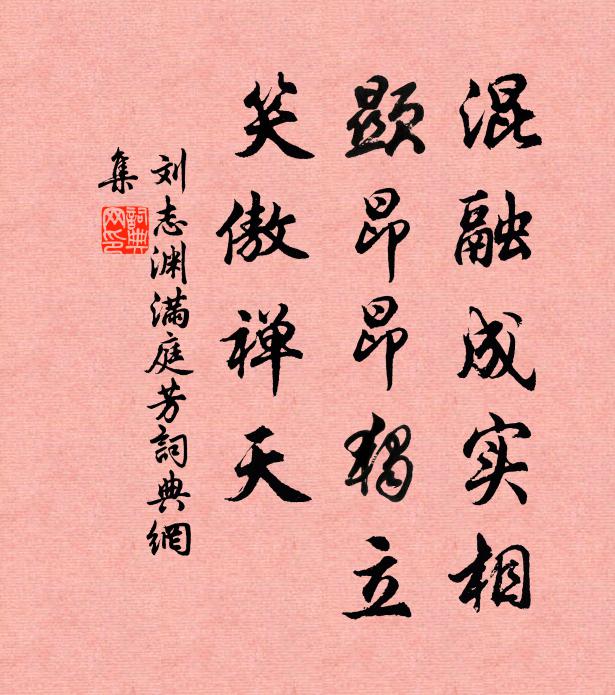 混融成实相
顕昂昂独立
笑傲禅天
刘志渊满庭芳詞典網
集
詞典网印